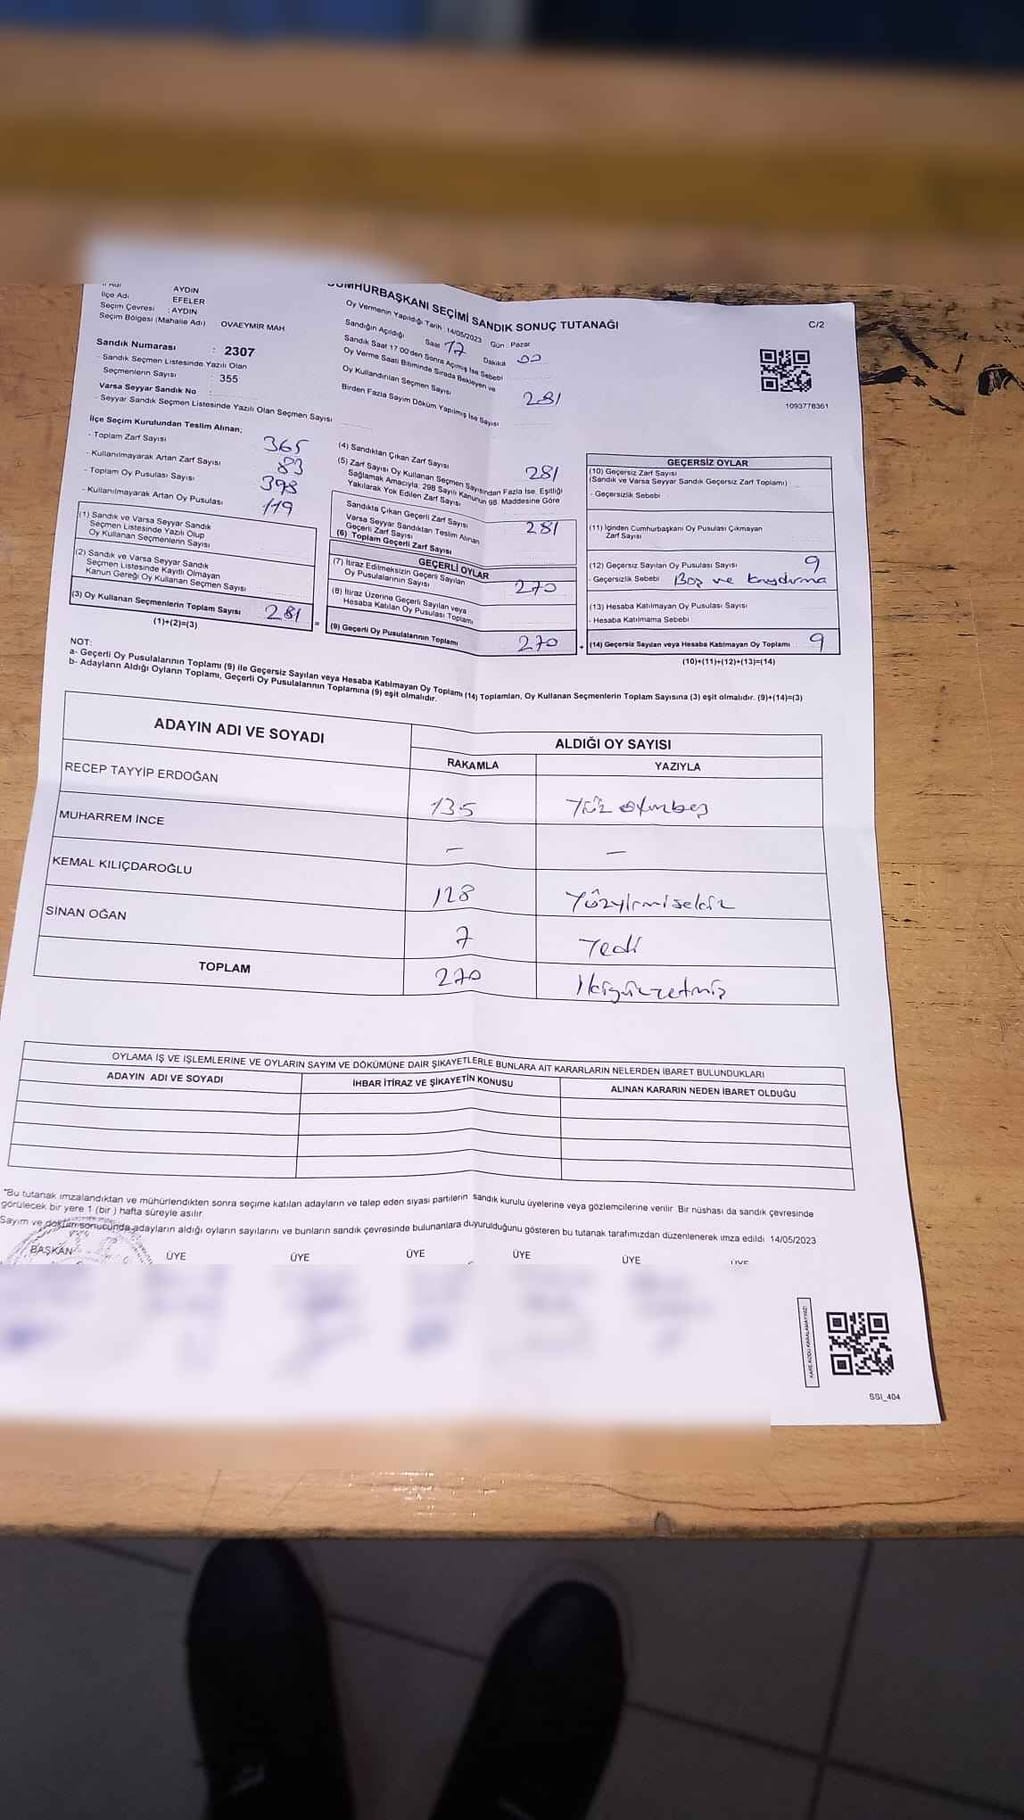 AYDIN
İlçe Adı EFELER
Seçim Çevresi : AYDIN
Seçim Bölgesi (Mahalle Adı) OVAEYMİR MAH
Sandık Numarası : 2307
- Sandık Seçmen Listesinde Yazılı Olan
Seçmenlerin Sayısı : 355
Varsa Seyyar Sandık No
- Seyyar Sandık Seçmen Listesinde Yazılı Olan Seçmen Sayısı
CUMHURBAŞKANI SEÇİMİ SANDIK SONUÇ TUTANAĞI
Oy Vermenin Yapıldığı Tarih : 14/05/2023 Gün : Pazar
Sandığın Açıldığı Saat 17 Dakika 00
Sandık Saat 17.00'den Sonra Açılmış İse Sebebi
Oy Verme Saati Bitiminde Sırada Bekleyen ve
Oy Kullandırılan Seçmen Sayısı 281
Birden Fazla Sayım Döküm Yapılmış İse Sayısı
C/2
1093778361
İlçe Seçim Kurulundan Teslim Alınan;
- Toplam Zarf Sayısı 365
- Kullanılmayarak Artan Zarf Sayısı 83
- Toplam Oy Pusulası Sayısı 398
- Kullanılmayarak Artan Oy Pusulası 119
(1) Sandık ve Varsa Seyyar Sandık
Seçmen Listesinde Yazılı Olup
Oy Kullanan Seçmenlerin Sayısı
(2) Sandık ve Varsa Seyyar Sandık
Seçmen Listesinde Kayıtlı Olmayan
Kanun Gereği Oy Kullanan Seçmen Sayısı
(3) Oy Kullanan Seçmenlerin Toplam Sayısı 281
(1)+(2)=(3)
(4) Sandıktan Çıkan Zarf Sayısı 281
(5) Zarf Sayısı Oy Kullanan Seçmen Sayısından Fazla İse, Eşitliği
Sağlamak Amacıyla; 298 Sayılı Kanunun 98. Maddesine Göre
Yakılarak Yok Edilen Zarf Sayısı
Sandıkta Çıkan Geçerli Zarf Sayısı 281
Varsa Seyyar Sandıktan Teslim Alınan
Geçerli Zarf Sayısı
(6) Toplam Geçerli Zarf Sayısı
GEÇERLİ OYLAR
(7) İtiraz Edilmeksizin Geçerli Sayılan
Oy Pusulalarının Sayısı 270
(8) İtiraz Üzerine Geçerli Sayılan veya
Hesaba Katılan Oy Pusulası Toplamı
(9) Geçerli Oy Pusulalarının Toplamı 270
GEÇERSİZ OYLAR
(10) Geçersiz Zarf Sayısı
(Sandık ve Varsa Seyyar Sandık Geçersiz Zarf Toplamı)
- Geçersizlik Sebebi
(11) İçinden Cumhurbaşkanı Oy Pusulası Çıkmayan
Zarf Sayısı
(12) Geçersiz Sayılan Oy Pusulası Sayısı 9
- Geçersizlik Sebebi Boş ve
(13) Hesaba Katılmayan Oy Pusulası Sayısı
- Hesaba Katılmama Sebebi
(14) Geçersiz Sayılan veya Hesaba Katılmayan Oy Toplamı 9
(10)+(11)+(12)+(13)=(14)
NOT:
a- Geçerli Oy Pusulalarının Toplamı (9) ile Geçersiz Sayılan veya Hesaba Katılmayan Oy Toplamı (14) Toplamları, Oy Kullanan Seçmenlerin Toplam Sayısına (3) eşit olmalıdır. (9)+(14)=(3)
b- Adayların Aldığı Oyların Toplamı, Geçerli Oy Pusulalarının Toplamına (9) eşit olmalıdır.
ADAYIN ADI VE SOYADI ALDIĞI OY SAYISI
RAKAMLA YAZIYLA
RECEP TAYYİP ERDOĞAN 135 Yüz otuzbeş
MUHARREM İNCE — —
KEMAL KILIÇDAROĞLU 128 Yüzyirmisekiz
SİNAN OĞAN 7 Yedi
TOPLAM 270 İkiyüzyetmiş
OYLAMA İŞ VE İŞLEMLERİNE VE OYLARIN SAYIM VE DÖKÜMÜNE DAİR ŞİKAYETLERLE BUNLARA AİT KARARLARIN NELERDEN İBARET BULUNDUKLARI
ADAYIN ADI VE SOYADI İHBAR İTİRAZ VE ŞİKAYETİN KONUSU ALINAN KARARIN NEDEN İBARET OLDUĞU
*Bu tutanak imzalandıktan ve mühürlendikten sonra seçime katılan adayların ve talep eden siyasi partilerin sandık kurulu üyelerine veya gözlemcilerine verilir. Bir nüshası da sandık çevresinde
görülecek bir yere 1 (bir ) hafta süreyle asılır.
Sayım ve döküm sonucunda adayların aldığı oyların sayılarını ve bunların sandık çevresinde bulunanlara duyurulduğunu gösteren bu tutanak tarafımızdan düzenlenerek imza edildi. 14/05/2023
BAŞKAN ÜYE ÜYE ÜYE ÜYE ÜYE ÜYE
SSI_404